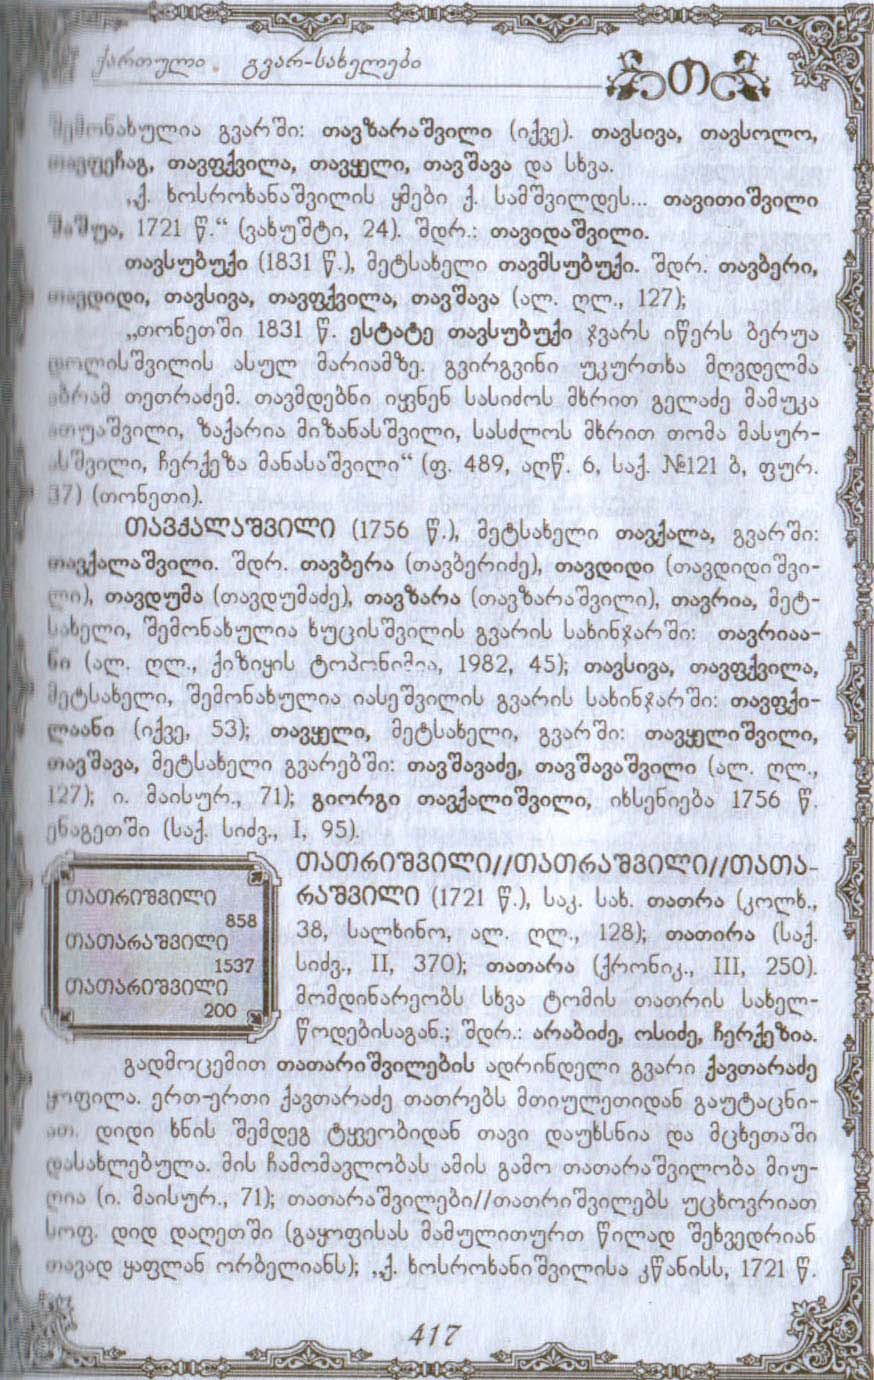 ქართული გვარ-სახელები
თ
შემონახულია გვარში: თავზარაშვილი (იქვე). თავსივა, თავსოლო,
თავფეჩაგ, თავფქვილა, თავყელი, თავშავა და სხვა.
„ქ. ხოსროხანაშვილის ყმები ქ. სამშვილდეს... თავითიშვილი
მამუა, 1721 წ.“ (ვახუშტი, 24). შდრ.: თავიდაშვილი.
თავსუბუქი (1831 წ.), მეტსახელი თავმსუბუქი. შდრ. თავბერი,
თავდიდი, თავსივა, თავფქვილა, თავშავა (ალ. ღლ., 127);
„თონეთში 1831 წ. ესტატე თავსუბუქი ჯვარს იწერს ბერუა
დოლისშვილის ასულ მარიამზე. გვირგვინი უკურთხა მღვდელმა
აბრამ თეთრაძემ. თავმდებნი იყვნენ სასიძოს მხრით გელაძე მამუკა
ათუაშვილი, ზაქარია მიზანასშვილი, სასძლოს მხრით თომა მასურ-
ასშვილი, ჩერქეზა მანასაშვილი“ (ფ. 489, აღწ. 6, საქ. №121 ბ, ფურ.
37) (თონეთი).
თავქალაშვილი (1756 წ.), მეტსახელი თავქალა, გვარში:
თავქალაშვილი. შდრ. თავბერა (თავბერიძე), თავდიდი (თავდიდიშვი-
ლი), თავდუმა (თავდუმაძე), თავზარა (თავზარაშვილი), თავრია, მეტ-
სახელი, შემონახულია ხუცისშვილის გვარის სახინჯარში: თავრიაა-
ნი (ალ. ღლ., ქიზიყის ტოპონიმია, 1982, 45); თავსივა, თავფქვილა,
მეტსახელი, შემონახულია იასეშვილის გვარის სახინჯარში: თავფქი-
ლაანი (იქვე, 53); თავყელი, მეტსახელი, გვარში: თავყელიშვილი,
თავშავა, მეტსახელი გვარებში: თავშავაძე, თავშავაშვილი (ალ. ღლ.,
127); ი. მაისურ., 71); გიორგი თავქალიშვილი, იხსენიება 1756 წ.
ენაგეთში (საქ. სიძვ., I, 95).
თათრიშვილი//თათრაშვილი//თათა-
რაშვილი (1721 წ.), საკ. სახ. თათრა (კოლხ.,
38, სალხინო, ალ. ღლ., 128); თათირა (საქ.
სიძვ., II, 370); თათარა (ქრონიკ., III, 250).
მომდინარეობს სხვა ტომის თათრის სახელ-
წოდებისაგან.; შდრ.: არაბიძე, ოსიძე, ჩერქეზია.
თათრიშვილი
858
თათარაშვილი
1537
თათარიშვილი
200
გადმოცემით თათარიშვილების ადრინდელი გვარი ქავთარაძე
ყოფილა. ერთ-ერთი ქავთარაძე თათრებს მთიულეთიდან გაუტაცნი-
ათ. დიდი ხნის შემდეგ ტყვეობიდან თავი დაუხსნია და მცხეთაში
დასახლებულა. მის ჩამომავლობას ამის გამო თათარაშვილობა მიუ-
ღია (ი. მაისურ., 71); თათარაშვილები//თათრიშვილებს უცხოვრიათ
სოფ. დიდ დაღეთში (გაყოფისას მამულითურთ წილად შეხვედრიან
თავად ყაფლან ორბელიანს); „ქ. ხოსროხანიშვილისა კწანისს, 1721 წ.
417